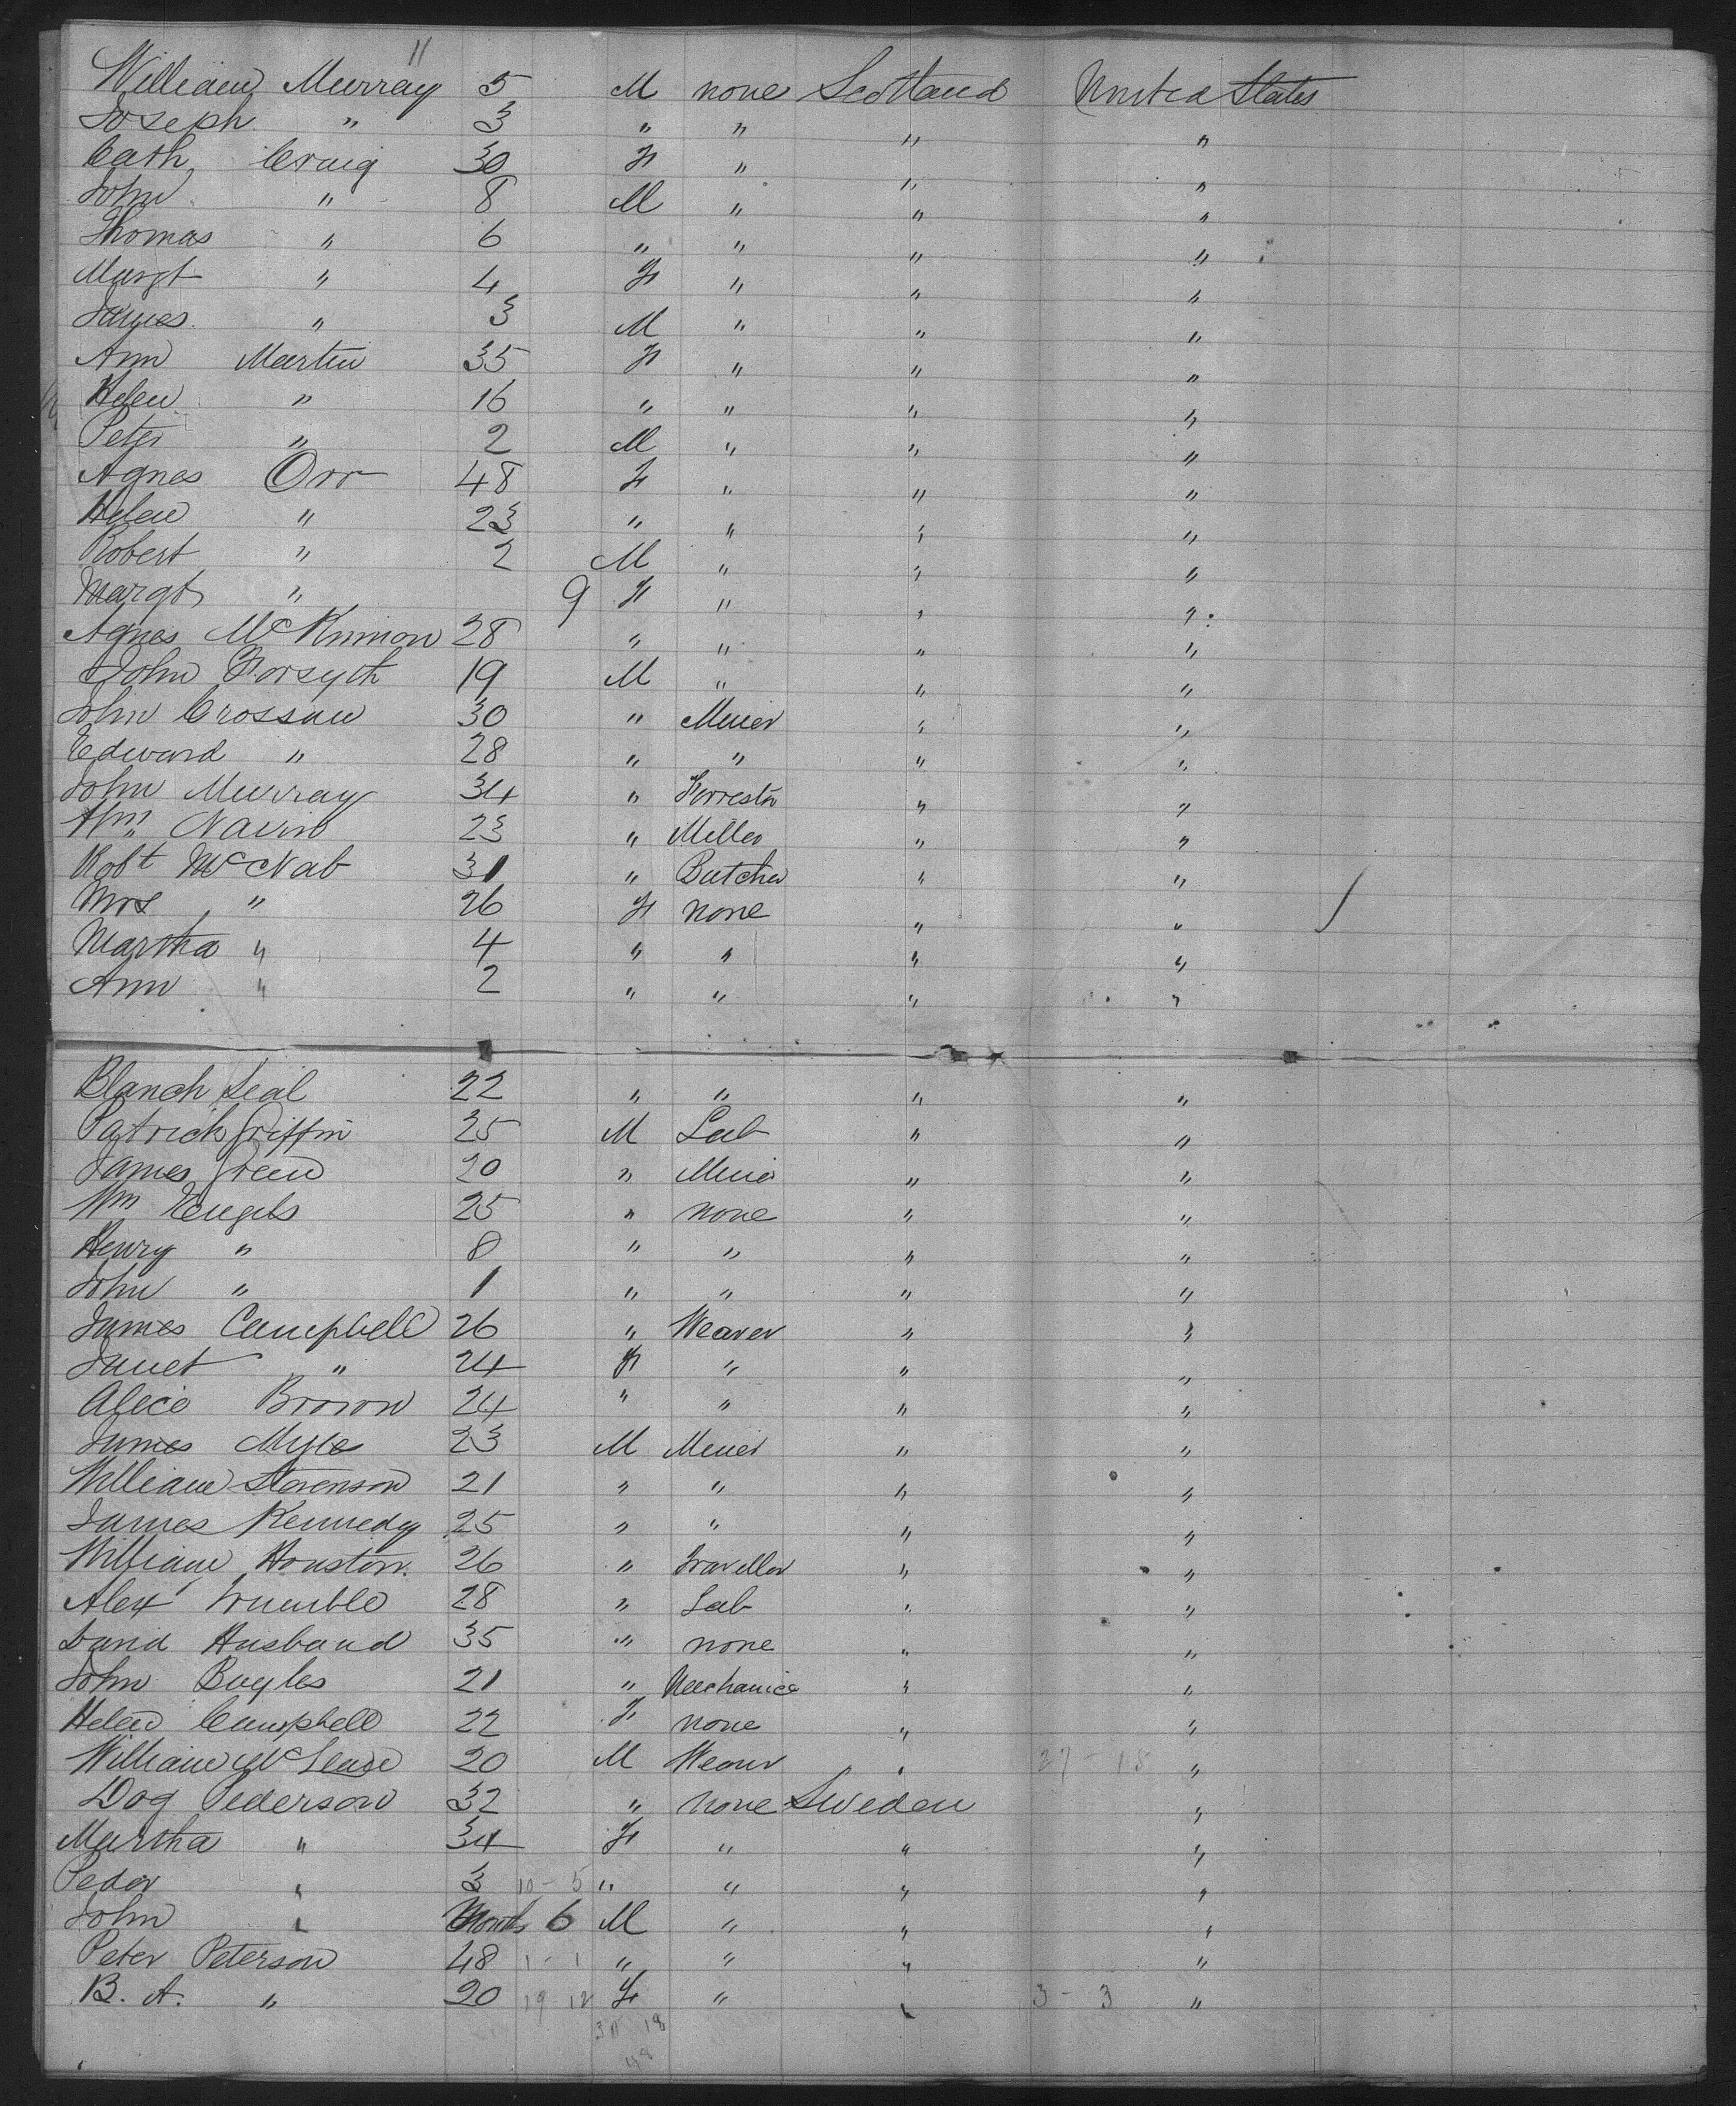 11
William Murray 5 M none Scotland United States
Joseph " 3 " " " "
Cath Craig 30 F " " "
John " 8 M " " "
Thomas " 6 " " " "
Margt " 4 F " " "
James " 3 M " " "
Ann Martin 35 F " " "
Helen " 16 " " " "
Peter " 2 M " " "
Agnes Orr 48 F " " "
Helen " 23 " " " "
Robert " 2 M " " "
Margt " 9 F " " "
Agnes McKinnon 28 " " " "
John Forsyth 19 M " " "
John Crossan 30 " Miner " "
Edward " 28 " " " "
John Murray 34 " Forrester " "
Wm Navin 23 " Miller " "
Robt McNab 31 " Butcher " "
Mrs " 26 F none " "
Martha " 4 " " " "
Ann " 2 " " " "
Blanch Leal 22 " " " "
Patrick Griffin 25 M Lab " "
James Green 20 " Miner " "
Wm Engels 25 " none " "
Henry " 8 " " " "
John " 1 " " " "
James Campbell 26 " Weaver " "
Janet " 24 F " " "
Alice Brown 24 " " " "
James Myles 23 M Miner " "
William Stevenson 21 " " " "
James Kennedy 25 " " " "
William Houston 26 " Traveller " "
Alex Trumble 28 " Lab " "
David Husband 35 " none " "
John Boyles 21 " Mechanic " "
Helen Campbell 22 F none " "
William McLease 20 M Weaver " 27 - 15 "
Dog Pederson 32 " none Sweden "
Martha " 34 F " " "
Peder " 3 10 - 5 " " " "
John " Months 6 M " " "
Peter Peterson 48 1 - 1 " " " "
B. A. " 20 19 12 F " " 3 - 3 "
30 18
48